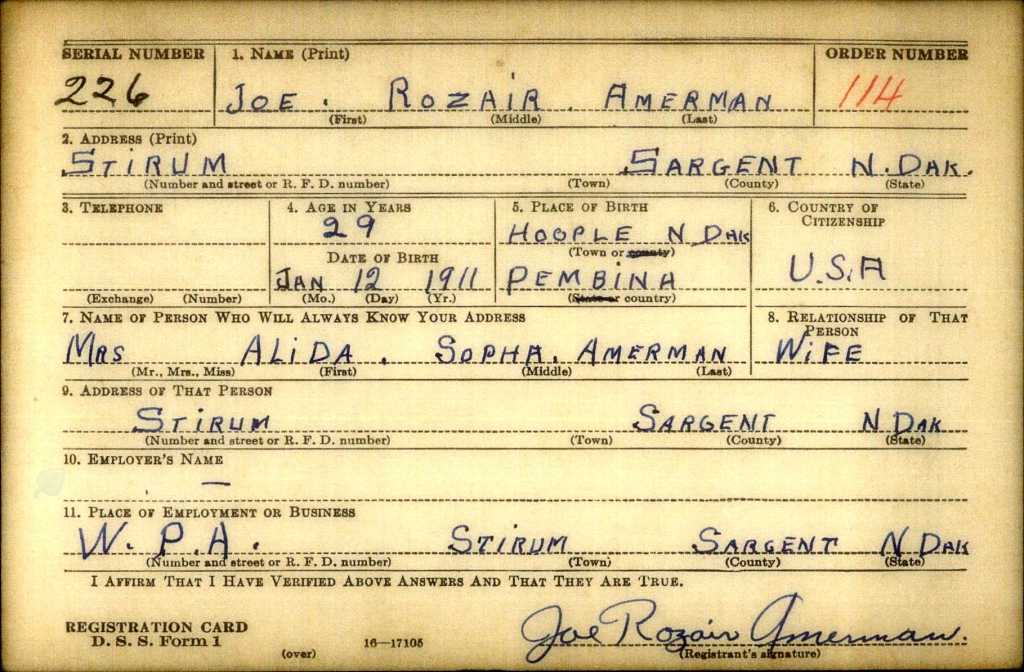 SERIAL NUMBER 1. NAME (Print) ORDER NUMBER
226 JOE. ROZAIR. AMERMAN 114
(First) (Middle) (Last)
2. ADDRESS (Print)
STIRUM SARGENT N. DAK.
(Number and street or R. F. D. number) (Town) (County) (State)
3. TELEPHONE 4. AGE IN YEARS 5. PLACE OF BIRTH 6. COUNTRY OF CITIZENSHIP
29 HOOPLE N DAK
(Town or county)
DATE OF BIRTH
JAN 12 1911 PEMBINA U.S.A
(Exchange) (Number) (Mo.) (Day) (Yr.) (State or country)
7. NAME OF PERSON WHO WILL ALWAYS KNOW YOUR ADDRESS 8. RELATIONSHIP OF THAT PERSON
MRS ALIDA. SOPHA. AMERMAN WIFE
(Mr., Mrs., Miss) (First) (Middle) (Last)
9. ADDRESS OF THAT PERSON
STIRUM SARGENT N DAK
(Number and street or R. F. D. number) (Town) (County) (State)
10. EMPLOYER'S NAME
—
11. PLACE OF EMPLOYMENT OR BUSINESS
W. P.A. STIRUM SARGENT N DAK
(Number and street or R. F. D. number) (Town) (County) (State)
I AFFIRM THAT I HAVE VERIFIED ABOVE ANSWERS AND THAT THEY ARE TRUE.
REGISTRATION CARD
D. S. S. Form 1 (over) 16—17105 Joe Rozair Amerman.
(Registrant's signature)